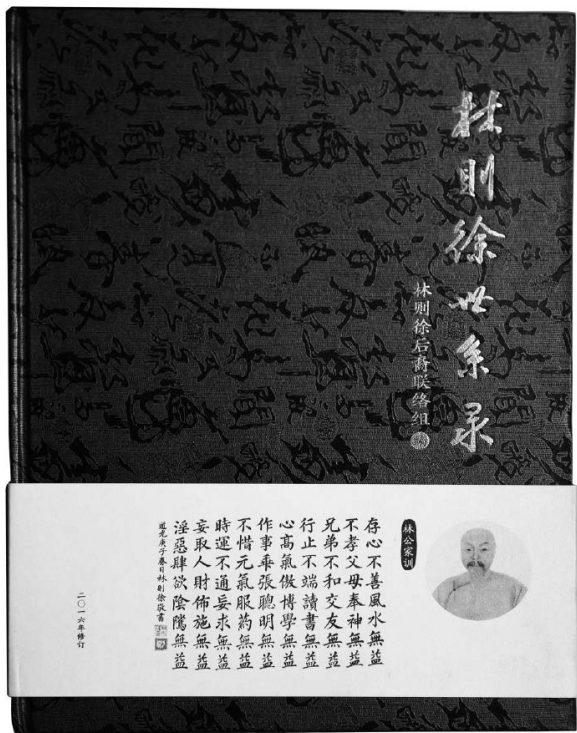 林则徐世系录
林则徐后裔联络组
林公家训
存心不善風水無益
不孝父母奉神無益
兄弟不和交友無益
行止不端讀書無益
心高氣傲博學無益
作事乖張聰明無益
不惜元氣服药無益
時運不通妄求無益
妄取人財佈施無益
淫惡肆欲陰隲無益
道光庚子春日林則徐敬書
二〇一六年修订